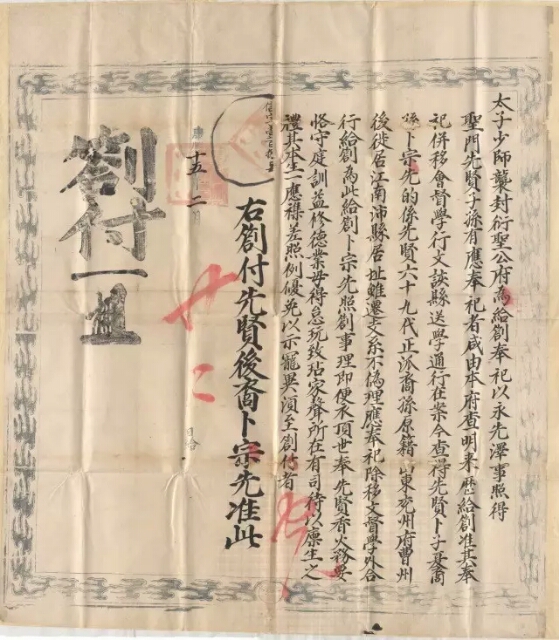 太子少師襲封衍聖公府為給劄奉祀以永先澤事照得
聖門先賢子孫有應奉祀者咸由本府查明來歷給劄准其奉
祀併移會督學行文該縣送學通行在案今查得先賢卜子夏裔
孫卜宗先的係先賢六十九代正派裔孫原籍山東兗州府曹州
後徙居江南沛縣居址雖遷支系不偽理應奉祀除移文督學外合
行給劄為此給劄卜宗先照劄事理即便衣頂世奉先賢香火務要
恪守庭訓益修德業毋得怠玩致玷家聲所在有司待以廩生之
禮其本生一應襍差照例優免以示寵異須至劄付者
右劄付先賢後裔卜宗先准此
康
十五 二 月
日給
劄付